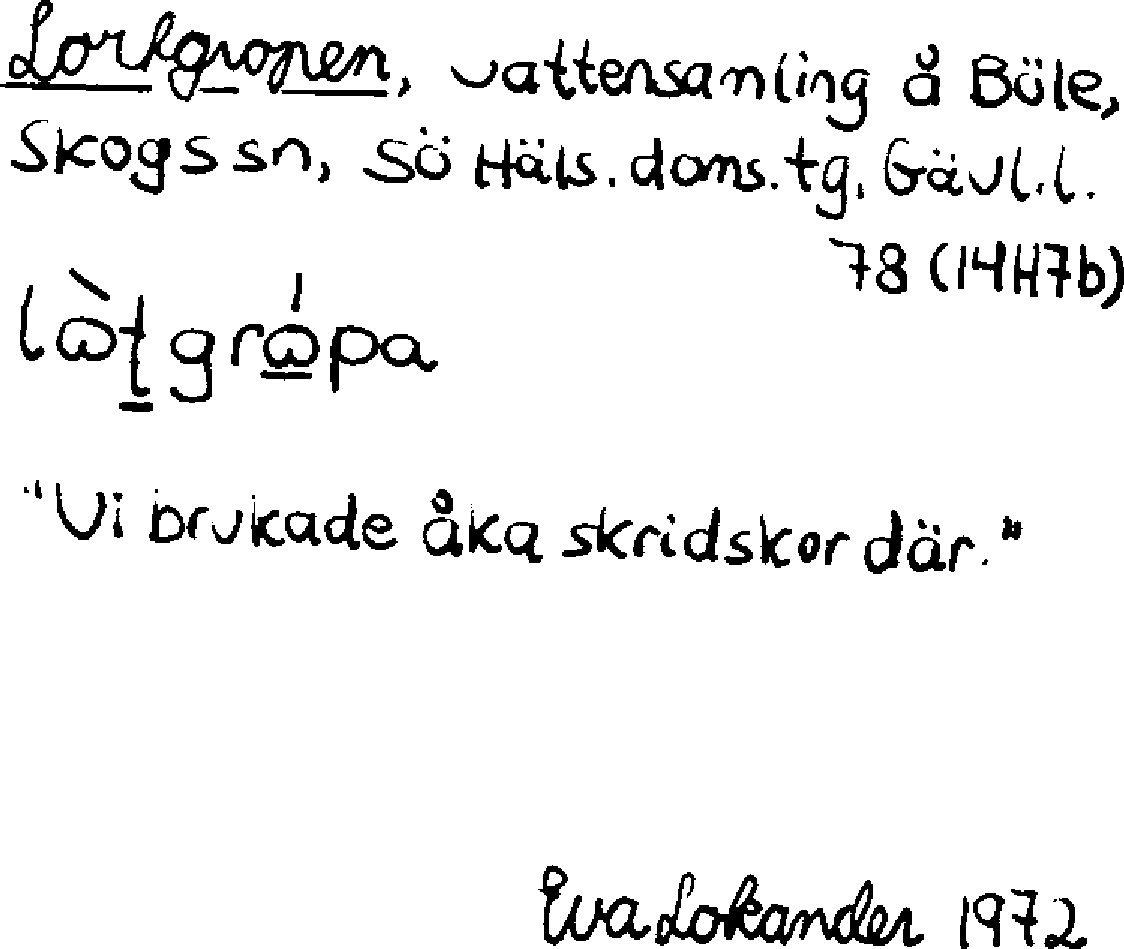 Lortgropen, vattensamling å Böle,
Skogs sn, Sö Häls. doms. tg, Gävl. l.
78 (14H7b)
lὼt̲grώ̲pa
"Vi brukade åka skridskor där."
Eva Lokander 1972